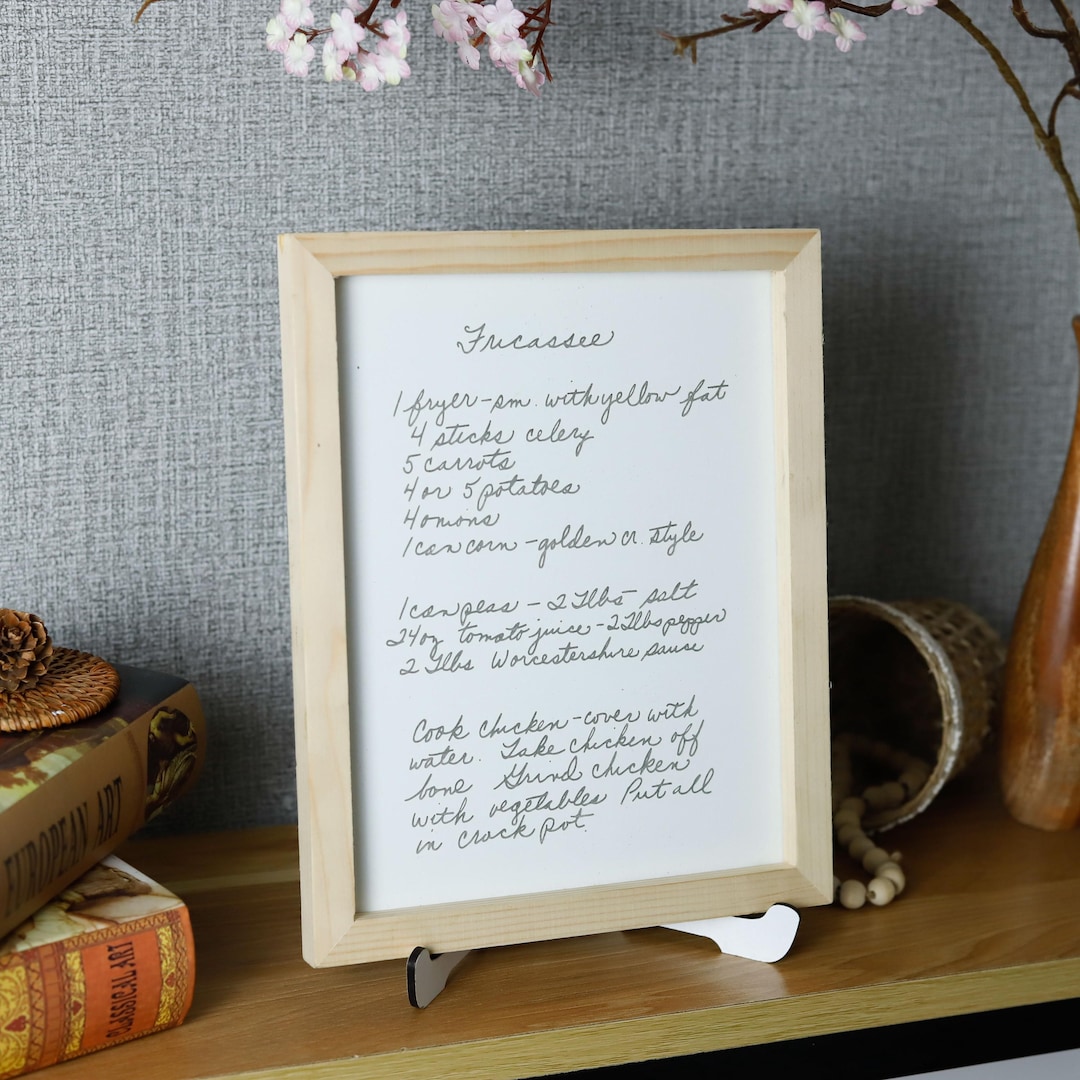 Fricassee
1 fryer - sm. with yellow fat
4 sticks celery
5 carrots
4 or 5 potatoes
4 onions
1 can corn - golden cr. style
1 can peas - 2 Tlbs - salt
24 oz tomato juice - 2 Tlbs pepper
2 Tlbs Worcestershire sause
Cook chicken - cover with
water. Take chicken off
bone Grind chicken
with vegetables Put all
in crock pot.
EUROPEAN ART
CLASSICAL ART